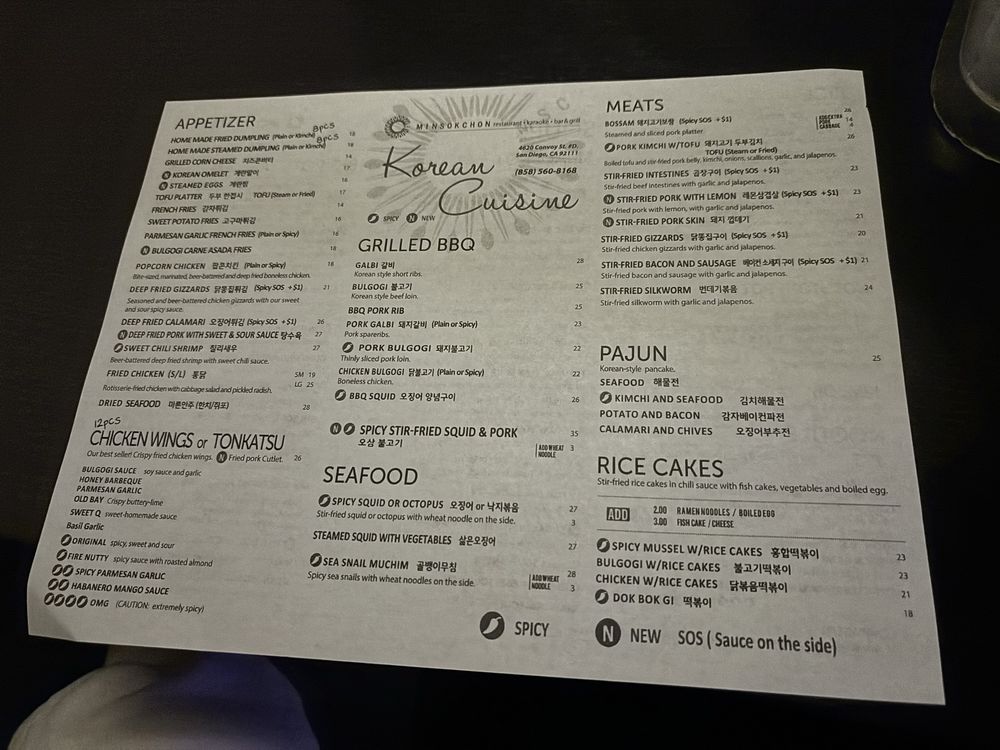 APPETIZER
HOME MADE FRIED DUMPLING (Plain or Kimchi) 8pcs 18
HOME MADE STEAMED DUMPLING (Plain or Kimchi) 8pcs 18
GRILLED CORN CHEESE 치즈콘버터 14
N KOREAN OMELET 계란말이 17
N STEAMED EGGS 계란찜 16
TOFU PLATTER 두부 한접시 TOFU (Steam or Fried) 17
FRENCH FRIES 감자튀김 14
SWEET POTATO FRIES 고구마튀김 16
PARMESAN GARLIC FRENCH FRIES (Plain or Spicy) 16
N BULGOGI CARNE ASADA FRIES 18
POPCORN CHICKEN 팝콘치킨 (Plain or Spicy) 18
Bite-sized, marinated, beer-battered and deep fried boneless chicken.
DEEP FRIED GIZZARDS 닭똥집튀김 (Spicy SOS +$1) 21
Seasoned and beer-battered chicken gizzards with our sweet
and sour spicy sauce.
DEEP FRIED CALAMARI 오징어튀김 (Spicy SOS +$1) 26
N DEEP FRIED PORK WITH SWEET & SOUR SAUCE 탕수육 27
SWEET CHILI SHRIMP 칠리새우 27
Beer-battered deep fried shrimp with sweet chili sauce.
FRIED CHICKEN (S/L) 통닭 SM 19
LG 25
Rotisserie-fried chicken with cabbage salad and pickled radish.
DRIED SEAFOOD 마른안주 (한치/쥐포) 28
12pcs
CHICKEN WINGS or TONKATSU
Our best seller! Crispy fried chicken wings. N Fried pork Cutlet. 26
BULGOGI SAUCE soy sauce and garlic
HONEY BARBEQUE
PARMESAN GARLIC
OLD BAY Crispy buttery-lime
SWEET Q sweet-homemade sauce
Basil Garlic
ORIGINAL spicy, sweet and sour
FIRE NUTTY spicy sauce with roasted almond
SPICY PARMESAN GARLIC
HABANERO MANGO SAUCE
OMG (CAUTION: extremely spicy)
MINSOKCHON restaurant • karaoke • bar & grill
4620 Convoy St. #D,
San Diego, CA 92111
(858) 560-8168
Korean
Cuisine
SPICY N NEW
GRILLED BBQ
GALBI 갈비 28
Korean style short ribs.
BULGOGI 불고기 25
Korean style beef loin.
BBQ PORK RIB 25
PORK GALBI 돼지갈비 (Plain or Spicy) 23
Pork spareribs.
PORK BULGOGI 돼지불고기 22
Thinly sliced pork loin.
CHICKEN BULGOGI 닭불고기 (Plain or Spicy) 22
Boneless chicken.
BBQ SQUID 오징어 양념구이 26
N SPICY STIR-FRIED SQUID & PORK 35
오삼 불고기
ADD WHEAT NOODLE 3
SEAFOOD
SPICY SQUID OR OCTOPUS 오징어 or 낙지볶음 27
Stir-fried squid or octopus with wheat noodle on the side. 3
STEAMED SQUID WITH VEGETABLES 삶은오징어 27
SEA SNAIL MUCHIM 골뱅이무침 28
Spicy sea snails with wheat noodles on the side.
ADD WHEAT NOODLE 3
SPICY
MEATS
BOSSAM 돼지고기보쌈 (Spicy SOS +$1) 28
Steamed and sliced pork platter
ADD EXTRA
PORK 14
CABBAGE 4
PORK KIMCHI W/TOFU 돼지고기 두부김치 26
TOFU (Steam or Fried)
Boiled tofu and stir-fried pork belly, kimchi, onions, scallions, garlic, and jalapenos.
STIR-FRIED INTESTINES 곱창구이 (Spicy SOS +$1) 23
Stir-fried beef intestines with garlic and jalapenos.
N STIR-FRIED PORK WITH LEMON 레몬삼겹살 (Spicy SOS +$1) 23
Stir-fried pork with lemon, with garlic and jalapenos.
N STIR-FRIED PORK SKIN 돼지 껍데기 21
STIR-FRIED GIZZARDS 닭똥집구이 (Spicy SOS +$1) 20
Stir-fried chicken gizzards with garlic and jalapenos.
STIR-FRIED BACON AND SAUSAGE 베이컨 소세지 구이 (Spicy SOS +$1) 21
Stir-fried bacon and sausage with garlic and jalapenos.
STIR-FRIED SILKWORM 번데기볶음 24
Stir-fried silkworm with garlic and jalapenos.
PAJUN 25
Korean-style pancake.
SEAFOOD 해물전
KIMCHI AND SEAFOOD 김치해물전
POTATO AND BACON 감자베이컨파전
CALAMARI AND CHIVES 오징어부추전
RICE CAKES
Stir-fried rice cakes in chili sauce with fish cakes, vegetables and boiled egg.
ADD 2.00 RAMEN NOODLES / BOILED EGG
3.00 FISH CAKE / CHEESE
SPICY MUSSEL W/RICE CAKES 홍합떡볶이 23
BULGOGI W/RICE CAKES 불고기떡볶이 23
CHICKEN W/RICE CAKES 닭볶음떡볶이 21
DOK BOK GI 떡볶이 18
N NEW SOS ( Sauce on the side)